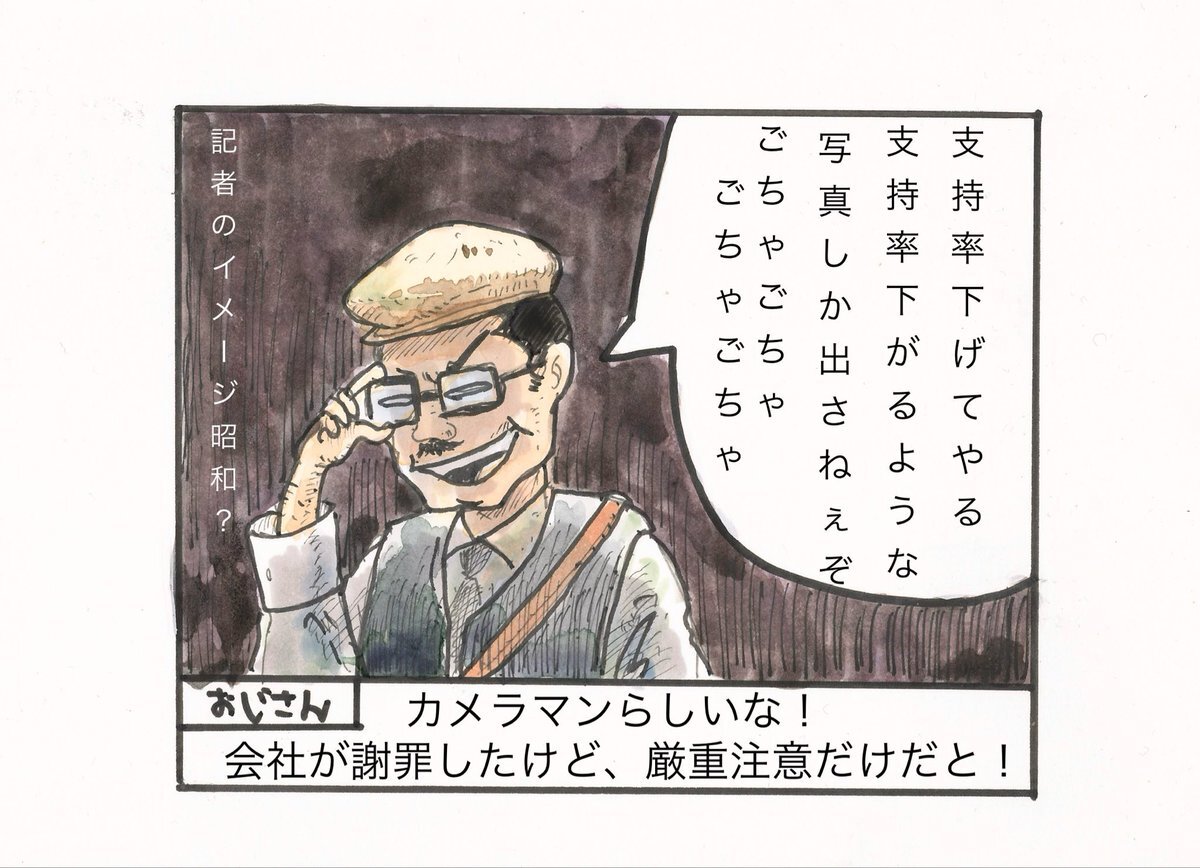 支持率下げてやる
支持率下がるような
写真しか出さねぇぞ
ごちゃごちゃ
ごちゃごちゃ
記者のイメージ昭和？
おじさん
カメラマンらしいな！
会社が謝罪したけど、厳重注意だけだと！